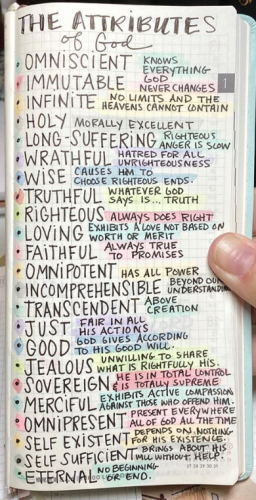 THE ATTRIBUTES
of God
OMNISCIENT KNOWS EVERYTHING
IMMUTABLE GOD NEVER CHANGES
1
INFINITE NO LIMITS AND THE HEAVENS CANNOT CONTAIN
HOLY MORALLY EXCELLENT
LONG-SUFFERING RIGHTEOUS ANGER IS SLOW
WRATHFUL HATRED FOR ALL UNRIGHTEOUSNESS
WISE CAUSES HIM TO CHOOSE RIGHTEOUS ENDS.
TRUTHFUL WHATEVER GOD SAYS IS... TRUTH
RIGHTEOUS ALWAYS DOES RIGHT
LOVING EXHIBITS A LOVE NOT BASED ON WORTH OR MERIT
FAITHFUL ALWAYS TRUE TO PROMISES
OMNIPOTENT HAS ALL POWER
INCOMPREHENSIBLE BEYOND OUR UNDERSTANDING
TRANSCENDENT ABOVE CREATION
JUST FAIR IN ALL HIS ACTIONS
GOOD GOD GIVES ACCORDING TO HIS GOOD WILL.
JEALOUS UNWILLING TO SHARE WHAT IS RIGHTFULLY HIS.
SOVEREIGN HE IS IN TOTAL CONTROL & IS TOTALLY SUPREME
MERCIFUL EXHIBITS ACTIVE COMPASSION AGAINST THOSE WHO OFFEND HIM.
OMNIPRESENT PRESENT EVERYWHERE ALL OF GOD ALL THE TIME
SELF EXISTENT DEPENDS ON NOTHING FOR HIS EXISTENCE.
SELF SUFFICIENT BRINGS ABOUT HIS WILL WITHOUT HELP.
27 28 29 30 31
ETERNAL NO BEGINNING OR END.